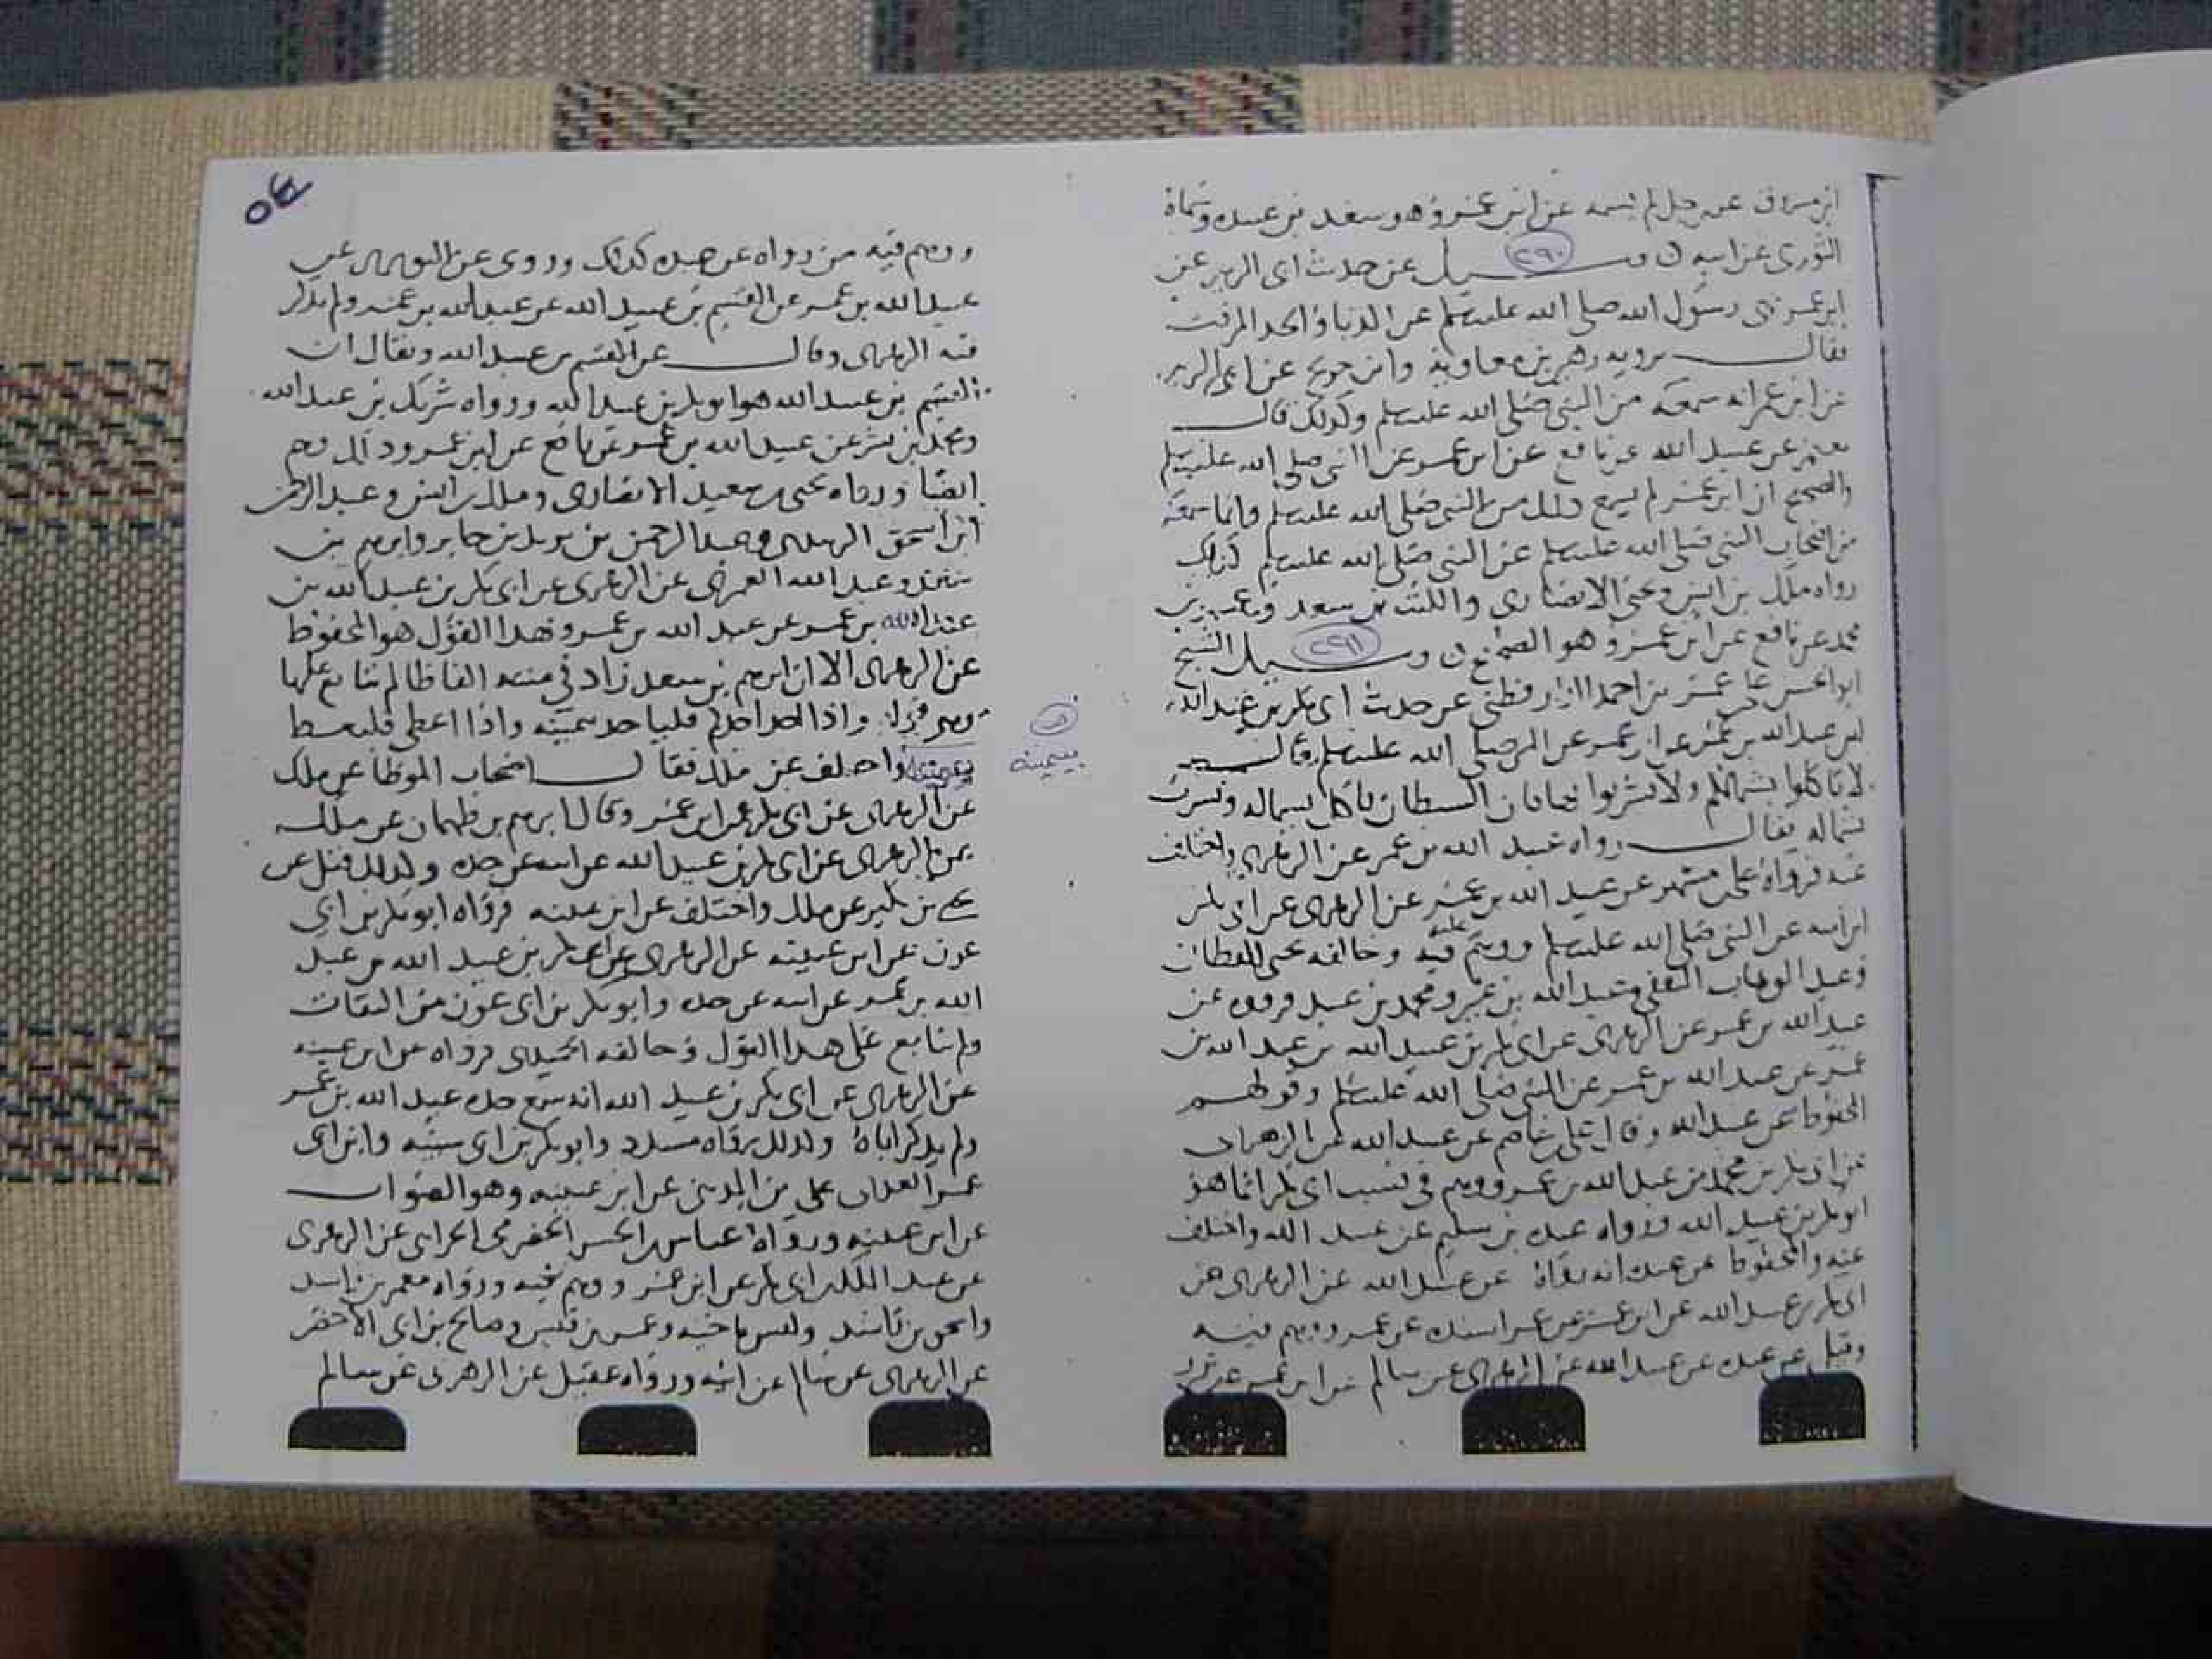 عن رجل لم يسمه عن ابن عمر وهو سعد بن عبيده وسماه
الثوري عن ابيه ن وسيل عن حديث ابي الزبير عن
ابن عمر نهى رسول الله صلى الله عليه وسلم عن الدباء والمزفت
فقال يرويه زهير بن معاوية وابن جريج عن ابي الزبير
عن ابن عمر انه سمعه من النبي صلى الله عليه وسلم وكذلك قال
معتمر عن عبيد الله عن نافع عن ابن عمر عن النبي صلى الله عليه وسلم
والصحيح ان ابن عمر لم يسمع ذلك من النبي صلى الله عليه وسلم وانما سمعه
من اصحاب النبي صلى الله عليه وسلم عن النبي صلى الله عليه وسلم كذلك
رواه ملك بن انس ويحيى الانصاري والليث بن سعد وعمر بن
محمد عن نافع عن ابن عمر وهو الصحيح ن وسيل الشيخ
٢٩٠
٢٩١
ابو الحسن علي بن عمر بن احمد الدارقطني عن حديث ابي بكر بن عبيد الله
ابن عبد الله بن عمر عن ابن عمر عن النبي صلى الله عليه وسلم قال
لا تاكلوا بشمالكم ولا تشربوا بها فان الشيطان ياكل بشماله ويشرب
بشماله فقال رواه عبيد الله بن عمر عن الزهري واختلف
عنه فرواه علي بن مسهر عن عبيد الله بن عمر عن الزهري عن ابي بكر
عن ابيه عن النبي صلى الله عليه وسلم ووهم فيه وخالفه يحيى القطان
وعبد الوهاب الثقفي وعبد الله بن نمير ومحمد بن عبيد فرووه عن
عبيد الله بن عمر عن الزهري عن ابي بكر بن عبيد الله بن عبد الله بن
عمر عن عبد الله بن عمر عن النبي صلى الله عليه وسلم وقولهم
المحفوظ عن عبيد الله وقال علي بن عاصم عن عبيد الله عن الزهري
عن ابي بكر بن محمد بن عبد الله بن عمر ووهم في نسب ابي بكر انما هو
ابو بكر بن عبيد الله ورواه عبدة بن سليم عن عبيد الله واختلف
عنه والمحفوظ عن عبدة انه رواه عن عبيد الله عن الزهري عن
ابي بكر بن عبيد الله عن ابن عمر عن عمر ووهم فيه
وقيل عن عبدة عن عبيد الله عن الزهري عن سالم عن ابن عمر عن
٥٤
ووهم فيه من رواه عن عبدة كذلك وروي عن الثوري عن
عبيد الله بن عمر عن القسم بن عبيد الله عن عبد الله بن عمر ولم يذكر
فيه الزهري وقال عن القسم بن عبيد الله ويقال ان
القسم بن عبيد الله هو ابو بكر بن عبيد الله ورواه شريك بن عبد الله
ومحمد بن بشر عن عبيد الله بن عمر عن نافع عن ابن عمر وذلك وهم
ايضا ورواه يحيى بن سعيد الانصاري وملك بن انس وعبد الرحمن
ابن اسحق المديني وعبد الرحمن بن يزيد بن جابر وابرهيم بن
سعد وعبد الله العمري عن الزهري عن ابي بكر بن عبيد الله بن
عبد الله بن عمر عن عبد الله بن عمر وهذا القول هو المحفوظ
عن الزهري الا ان ابرهيم بن سعد زاد في متنه الفاظا لم يتابع عليها
وهو قوله واذا اخذ احدكم فلياخذ بيمينه واذا اعطى فليعط
بيمينه واختلف عن ملك فقال اصحاب الموطا عن ملك
بيمينه
عن الزهري عن ابي بكر عن ابن عمر وقال ابرهيم بن طهمان عن ملك
عن الزهري عن ابي بكر بن عبيد الله عن ابيه عن جده وكذلك قيل عن
يحيى بن بكير عن ملك واختلف عن ابن عيينه فرواه ابو بكر بن ابي
عون عن ابن عيينه عن الزهري عن ابي بكر بن عبيد الله بن عبد
الله بن عمر عن ابيه عن جده وابو بكر بن ابي عون من الثقات
ولم يتابع على هذا القول وخالفه الحميدي فرواه عن ابن عيينه
عن الزهري عن ابي بكر بن عبيد الله انه سمع جده عبد الله بن عمر
ولم يذكر اباه وكذلك رواه مسدد وابو بكر بن ابي شيبه وابن ابي
عمر العدني وعلي بن المديني عن ابن عيينه وهو الصواب
عن ابن عيينه ورواه عباس بن الحسن الخضرمي الحراني عن الزهري
عن عبد الملك بن ابي بكر عن ابن عمر ووهم فيه ورواه معمر بن راشد
واسحق بن راشد وليس باخيه وعمر بن قيس وصالح بن ابي الاخضر
عن الزهري عن سالم عن ابيه ورواه عقيل عن الزهري عن سالم